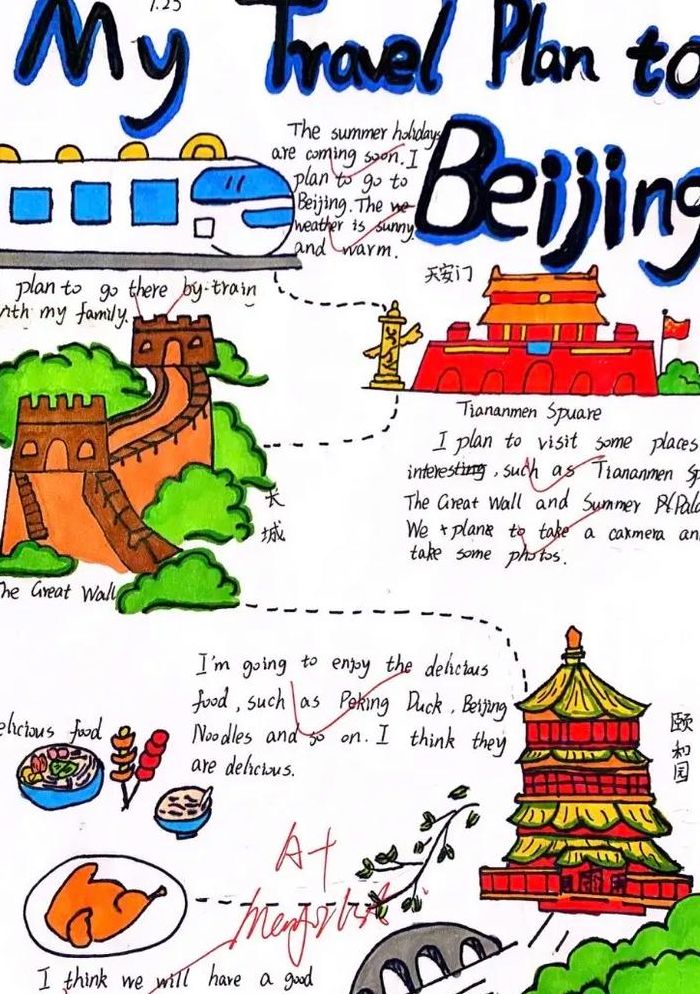 1.23
My Travel Plan to
Beijing
The summer holidays
are coming soon. I
plan to go to
Beijing. The we
weather is sunny
and warm.
plan to go there by train
ith my family.
天安门
Tiananmen Spuare
I plan to visit some places
interesting, such as Tiananmen Sp
The Great Wall and Summer Pala
We plan to take a camera an
take some photos.
长
城
The Great Wall
I'm going to enjoy the delicious
food, such as Peking Duck, Beijing
Noodles and so on. I think they
are delicious.
elicious food
颐
和
园
A+
I think we will have a good